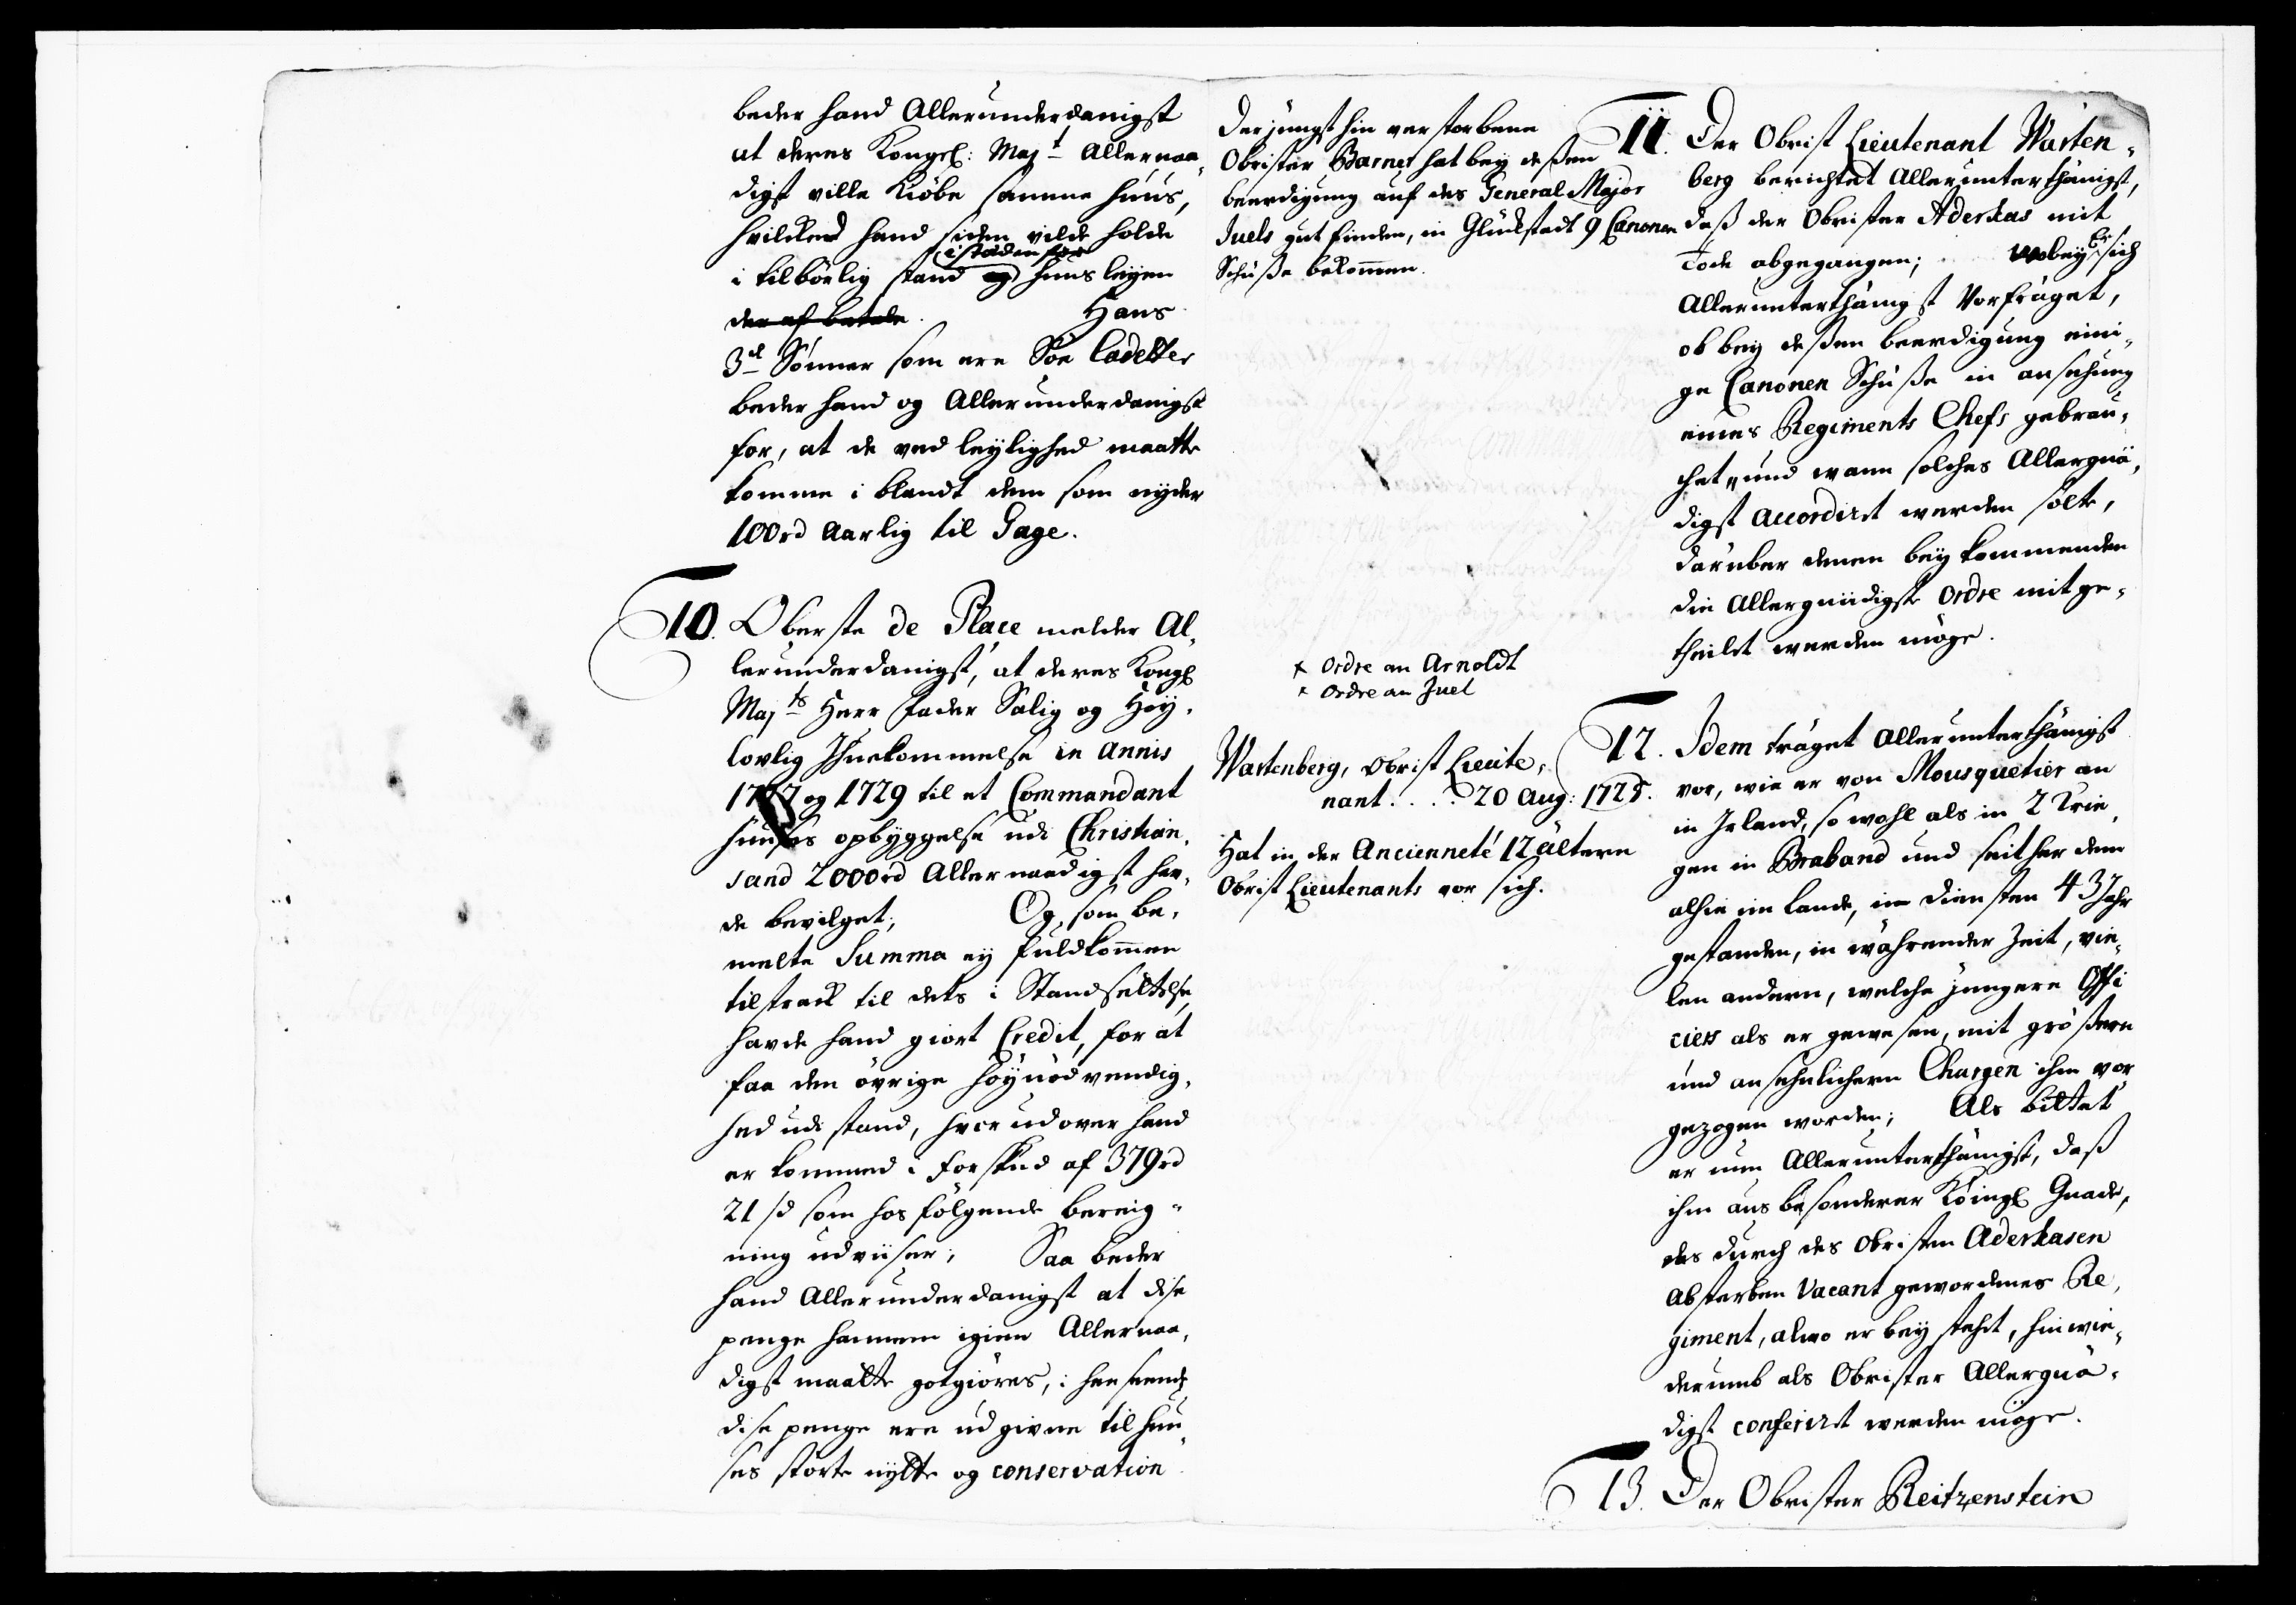 beder hand Allerunderdanigst
at deres Kongel: Maj.t Allernaa-
digst ville Kiöbe samme Huus,
hvilked hand siden vilde holde
i tilbörlig stand og huusleyen
i stæden for
der af betale. Hans
3.de Sönner som ere Söe Cadetter
beder hand og Allerunderdanigst
for, at de ved leylighed maatte
komme i blandt dem som nyder
100rd Aarlig til Gage.
10. Oberste de Place melder Al-
lerunderdanigst, at deres Kongl
Maj.ts Herr Fader Salig og Höy-
lovlig Ihuekommelse in Annis
1727 og 1729 til et Commandant
huuses opbyggelse udi Christian-
sand 2000rd Allernaadigst hav-
de bevilget; Og som be-
melte Summa ey fuldkommen
tilstræk til dets i Standsættelse,
havde hand giort Credit, for at
faa den övrige höynödvendig-
hed udi stand, hvorudover hand
er kommed i forskud af 379rd
21 sd som hosfölgende bereig-
ning udviiser; Saa beder
hand Allerunderdanigst at dise
penge hannem igien Allernaa-
digst maatte gotgiöres, i henseende
dise penge ere udgivne til huu-
ses störte nytte og conservation.
Der jüngsthin verstorbene
Obrister Barner hat bey deßen
beerdigung auf des General Major
Juels gutfinden, in Glückstadt 9 Canonen
Schüße bekommen.
x Ordre an Arnoldt
x Ordre an Juel
Wartenberg, Obrist Lieute-
nant.... 20 Aug: 1725.
Hat in der Ancienneté 12 ältere
Obrist Lieutenants vor sich.
11. Der Obrist Lieutenant Warten-
berg berichtet Allerunterthänigst,
daß der Obrister Aderkas mit
Tode abgegangen; wobey er sich
Allerunterthänigst Vorfräget,
ob bey deßen beerdigung eini-
ge Canonen Schüße in ansehung
eines Regiments Chefs gebrau-
chet, und wann solches Allergnä-
digst accordiret werden solte,
darüber denen beykommenden
die Allergnädigste Ordre mitge-
theilet werden möge.
12. Idem träget Allerunterthänigst
vor, wie er von Mousquetier an
in Irland, so wohl als in 2 Krie-
gen in Braband und seither dem
alhie im Lande, in diensten 43 Jahr
gestanden, in währender Zeit, vie-
len andern, welche jüngere Offi
ciers als er gewesen, mit größern
und ansehnlichern Chargen ihm vor
gezogen worden; Als bittet
er nun Allerunterthänigst, daß
ihm aus besonderer Köingl Gnade,
des durch des Obristen Aderkasen
Absterben Vacant gewordenes Re-
giment, alwo er bey stehet, hinwie-
derumb als Obrister Allergnä-
digst conferiret werden möge.
13. Der Obrister Reitzenstein